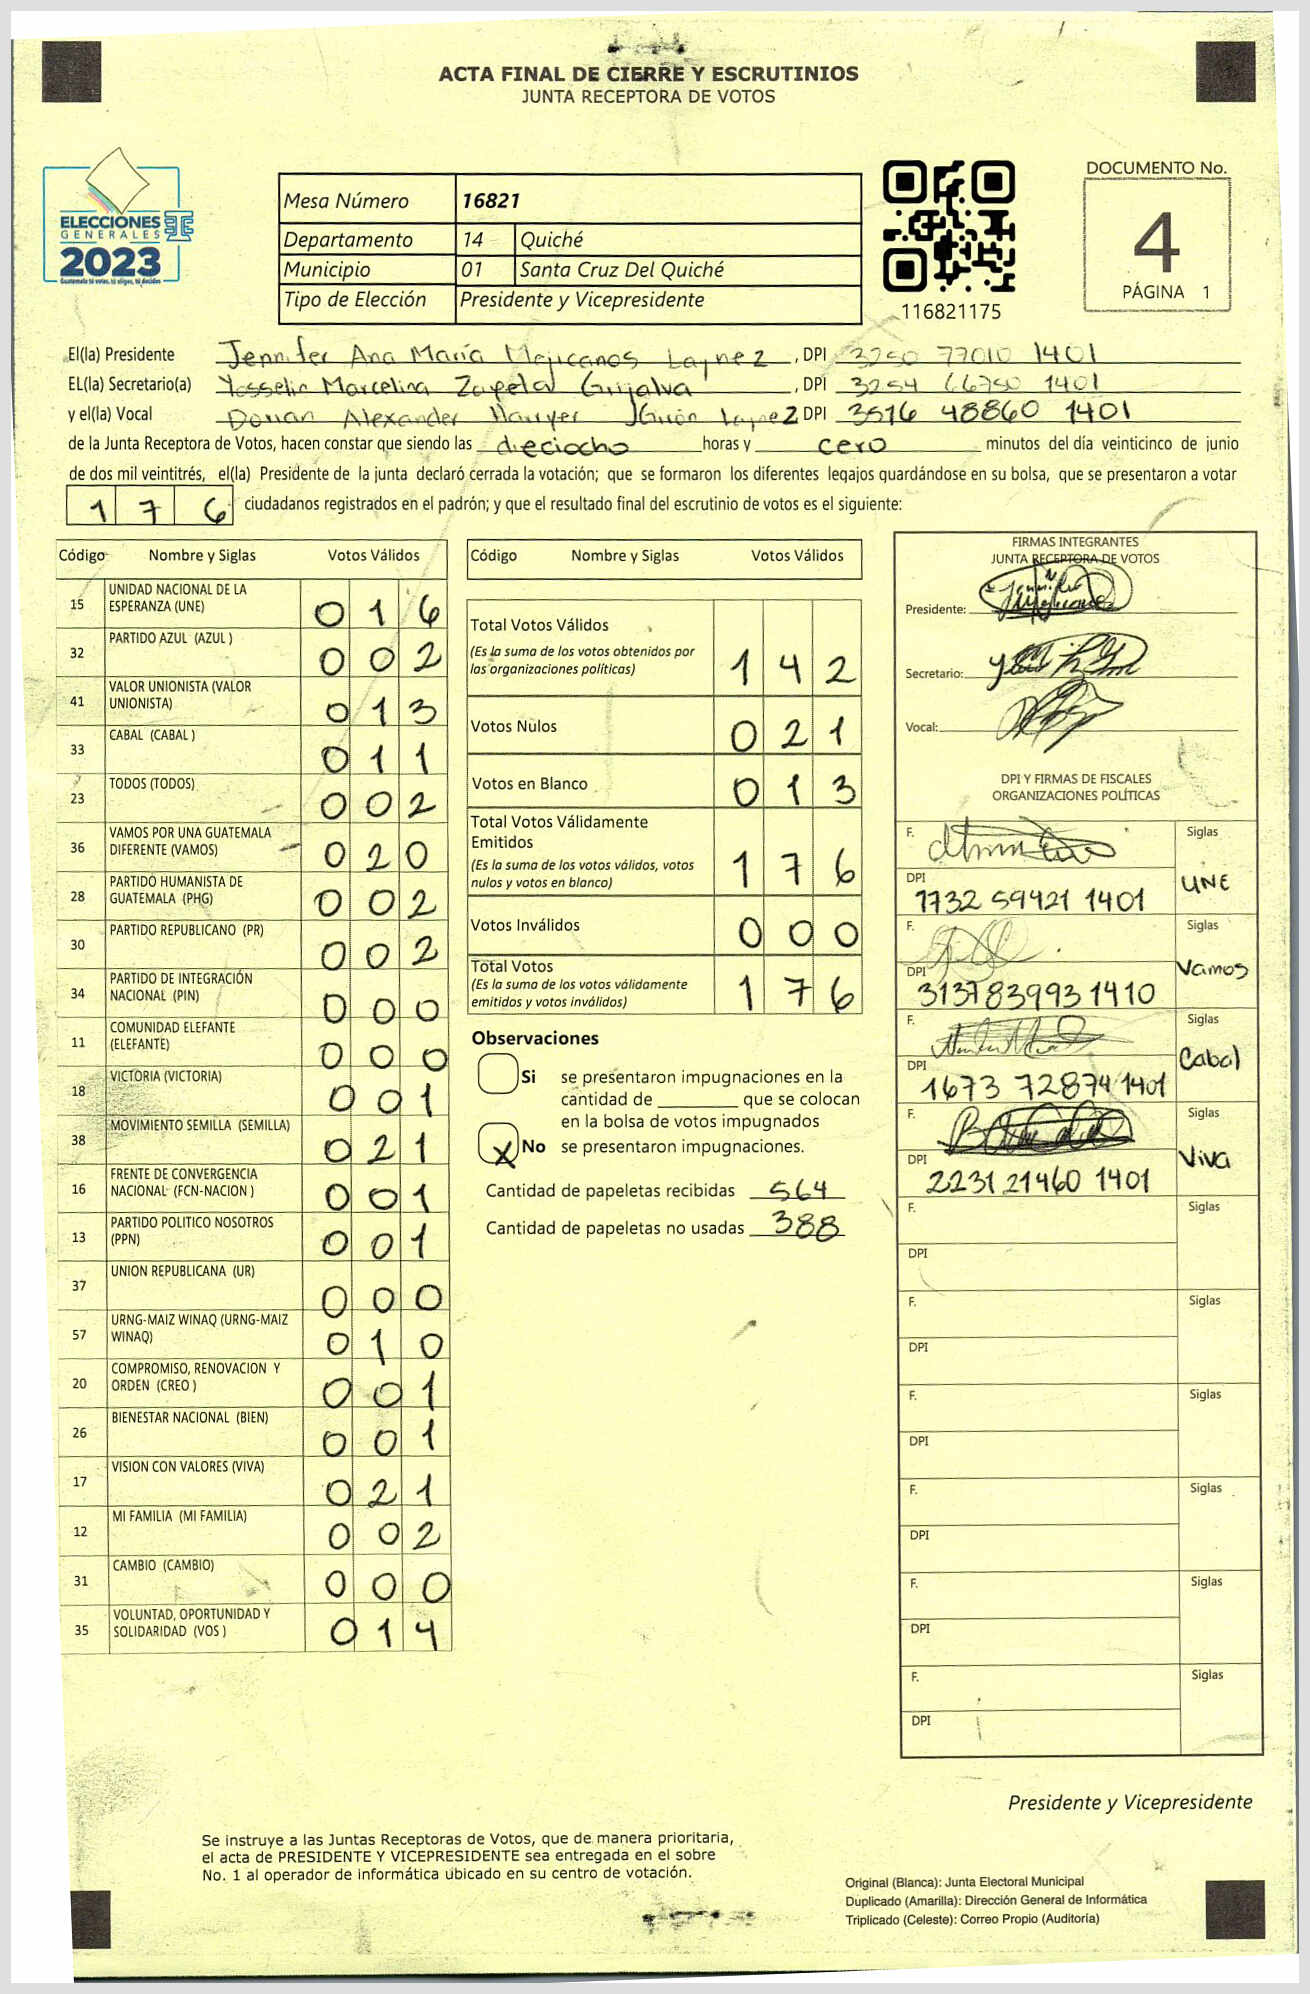 ACTA FINAL DE CIERRE Y ESCRUTINIOS
JUNTA RECEPTORA DE VOTOS
ELECCIONES
GENERALES
2023
Guatemala tú votas, tú eliges, tú decides
Mesa Número 16821
Departamento 14 Quiché
Municipio 01 Santa Cruz Del Quiché
Tipo de Elección Presidente y Vicepresidente
116821175
DOCUMENTO No.
4
PÁGINA 1
El(la) Presidente Jennifer Ana María Mejicanos Laynez , DPI 3250 77010 1401
EL(la) Secretario(a) Yosselin Marcelina Zapeta Grijalva , DPI 3254 66750 1401
y el(la) Vocal Alexander Girón Laynez DPI 3516 48860 1401
de la Junta Receptora de Votos, hacen constar que siendo las dieciocho horas y cero minutos del día veinticinco de junio
de dos mil veintitrés, el(la) Presidente de la junta declaró cerrada la votación; que se formaron los diferentes legajos quardándose en su bolsa, que se presentaron a votar
176 ciudadanos registrados en el padrón; y que el resultado final del escrutinio de votos es el siguiente:
Código Nombre y Siglas Votos Válidos
15 UNIDAD NACIONAL DE LA ESPERANZA (UNE) 016
32 PARTIDO AZUL (AZUL ) 002
41 VALOR UNIONISTA (VALOR UNIONISTA) 013
33 CABAL (CABAL ) 011
23 TODOS (TODOS) 002
36 VAMOS POR UNA GUATEMALA DIFERENTE (VAMOS) 020
28 PARTIDO HUMANISTA DE GUATEMALA (PHG) 002
30 PARTIDO REPUBLICANO (PR) 002
34 PARTIDO DE INTEGRACIÓN NACIONAL (PIN) 000
11 COMUNIDAD ELEFANTE (ELEFANTE) 000
18 VICTORIA (VICTORIA) 001
38 MOVIMIENTO SEMILLA (SEMILLA) 021
16 FRENTE DE CONVERGENCIA NACIONAL (FCN-NACION ) 001
13 PARTIDO POLITICO NOSOTROS (PPN) 001
37 UNION REPUBLICANA (UR) 000
57 URNG-MAIZ WINAQ (URNG-MAIZ WINAQ) 010
20 COMPROMISO, RENOVACION Y ORDEN (CREO ) 001
26 BIENESTAR NACIONAL (BIEN) 001
17 VISION CON VALORES (VIVA) 021
12 MI FAMILIA (MI FAMILIA) 002
31 CAMBIO (CAMBIO) 000
35 VOLUNTAD, OPORTUNIDAD Y SOLIDARIDAD (VOS ) 014
Código Nombre y Siglas Votos Válidos
Total Votos Válidos 142
(Es la suma de los votos obtenidos por
las organizaciones políticas)
Votos Nulos 021
Votos en Blanco 013
Total Votos Válidamente
Emitidos 176
(Es la suma de los votos válidos, votos
nulos y votos en blanco)
Votos Inválidos 000
Total Votos 176
(Es la suma de los votos válidamente
emitidos y votos inválidos)
Observaciones
Si se presentaron impugnaciones en la
cantidad de ________ que se colocan
en la bolsa de votos impugnados
X No se presentaron impugnaciones.
Cantidad de papeletas recibidas 564
Cantidad de papeletas no usadas 388
FIRMAS INTEGRANTES
JUNTA RECEPTORA DE VOTOS
Presidente:
Secretario:
Vocal:
DPI Y FIRMAS DE FISCALES
ORGANIZACIONES POLÍTICAS
F. Siglas
DPI 1732 59421 1401 UNE
F. Siglas
DPI 3137839931410 Vamos
F. Siglas
DPI 1673 72874 1401 Cabal
F. Siglas
DPI 2231 21460 1401 Viva
F. Siglas
DPI
F. Siglas
DPI
F. Siglas
DPI
F. Siglas
DPI
F. Siglas
DPI
F. Siglas
DPI
Presidente y Vicepresidente
Se instruye a las Juntas Receptoras de Votos, que de manera prioritaria,
el acta de PRESIDENTE Y VICEPRESIDENTE sea entregada en el sobre
No. 1 al operador de informática ubicado en su centro de votación.
Original (Blanca): Junta Electoral Municipal
Duplicado (Amarilla): Dirección General de Informática
Triplicado (Celeste): Correo Propio (Auditoría)